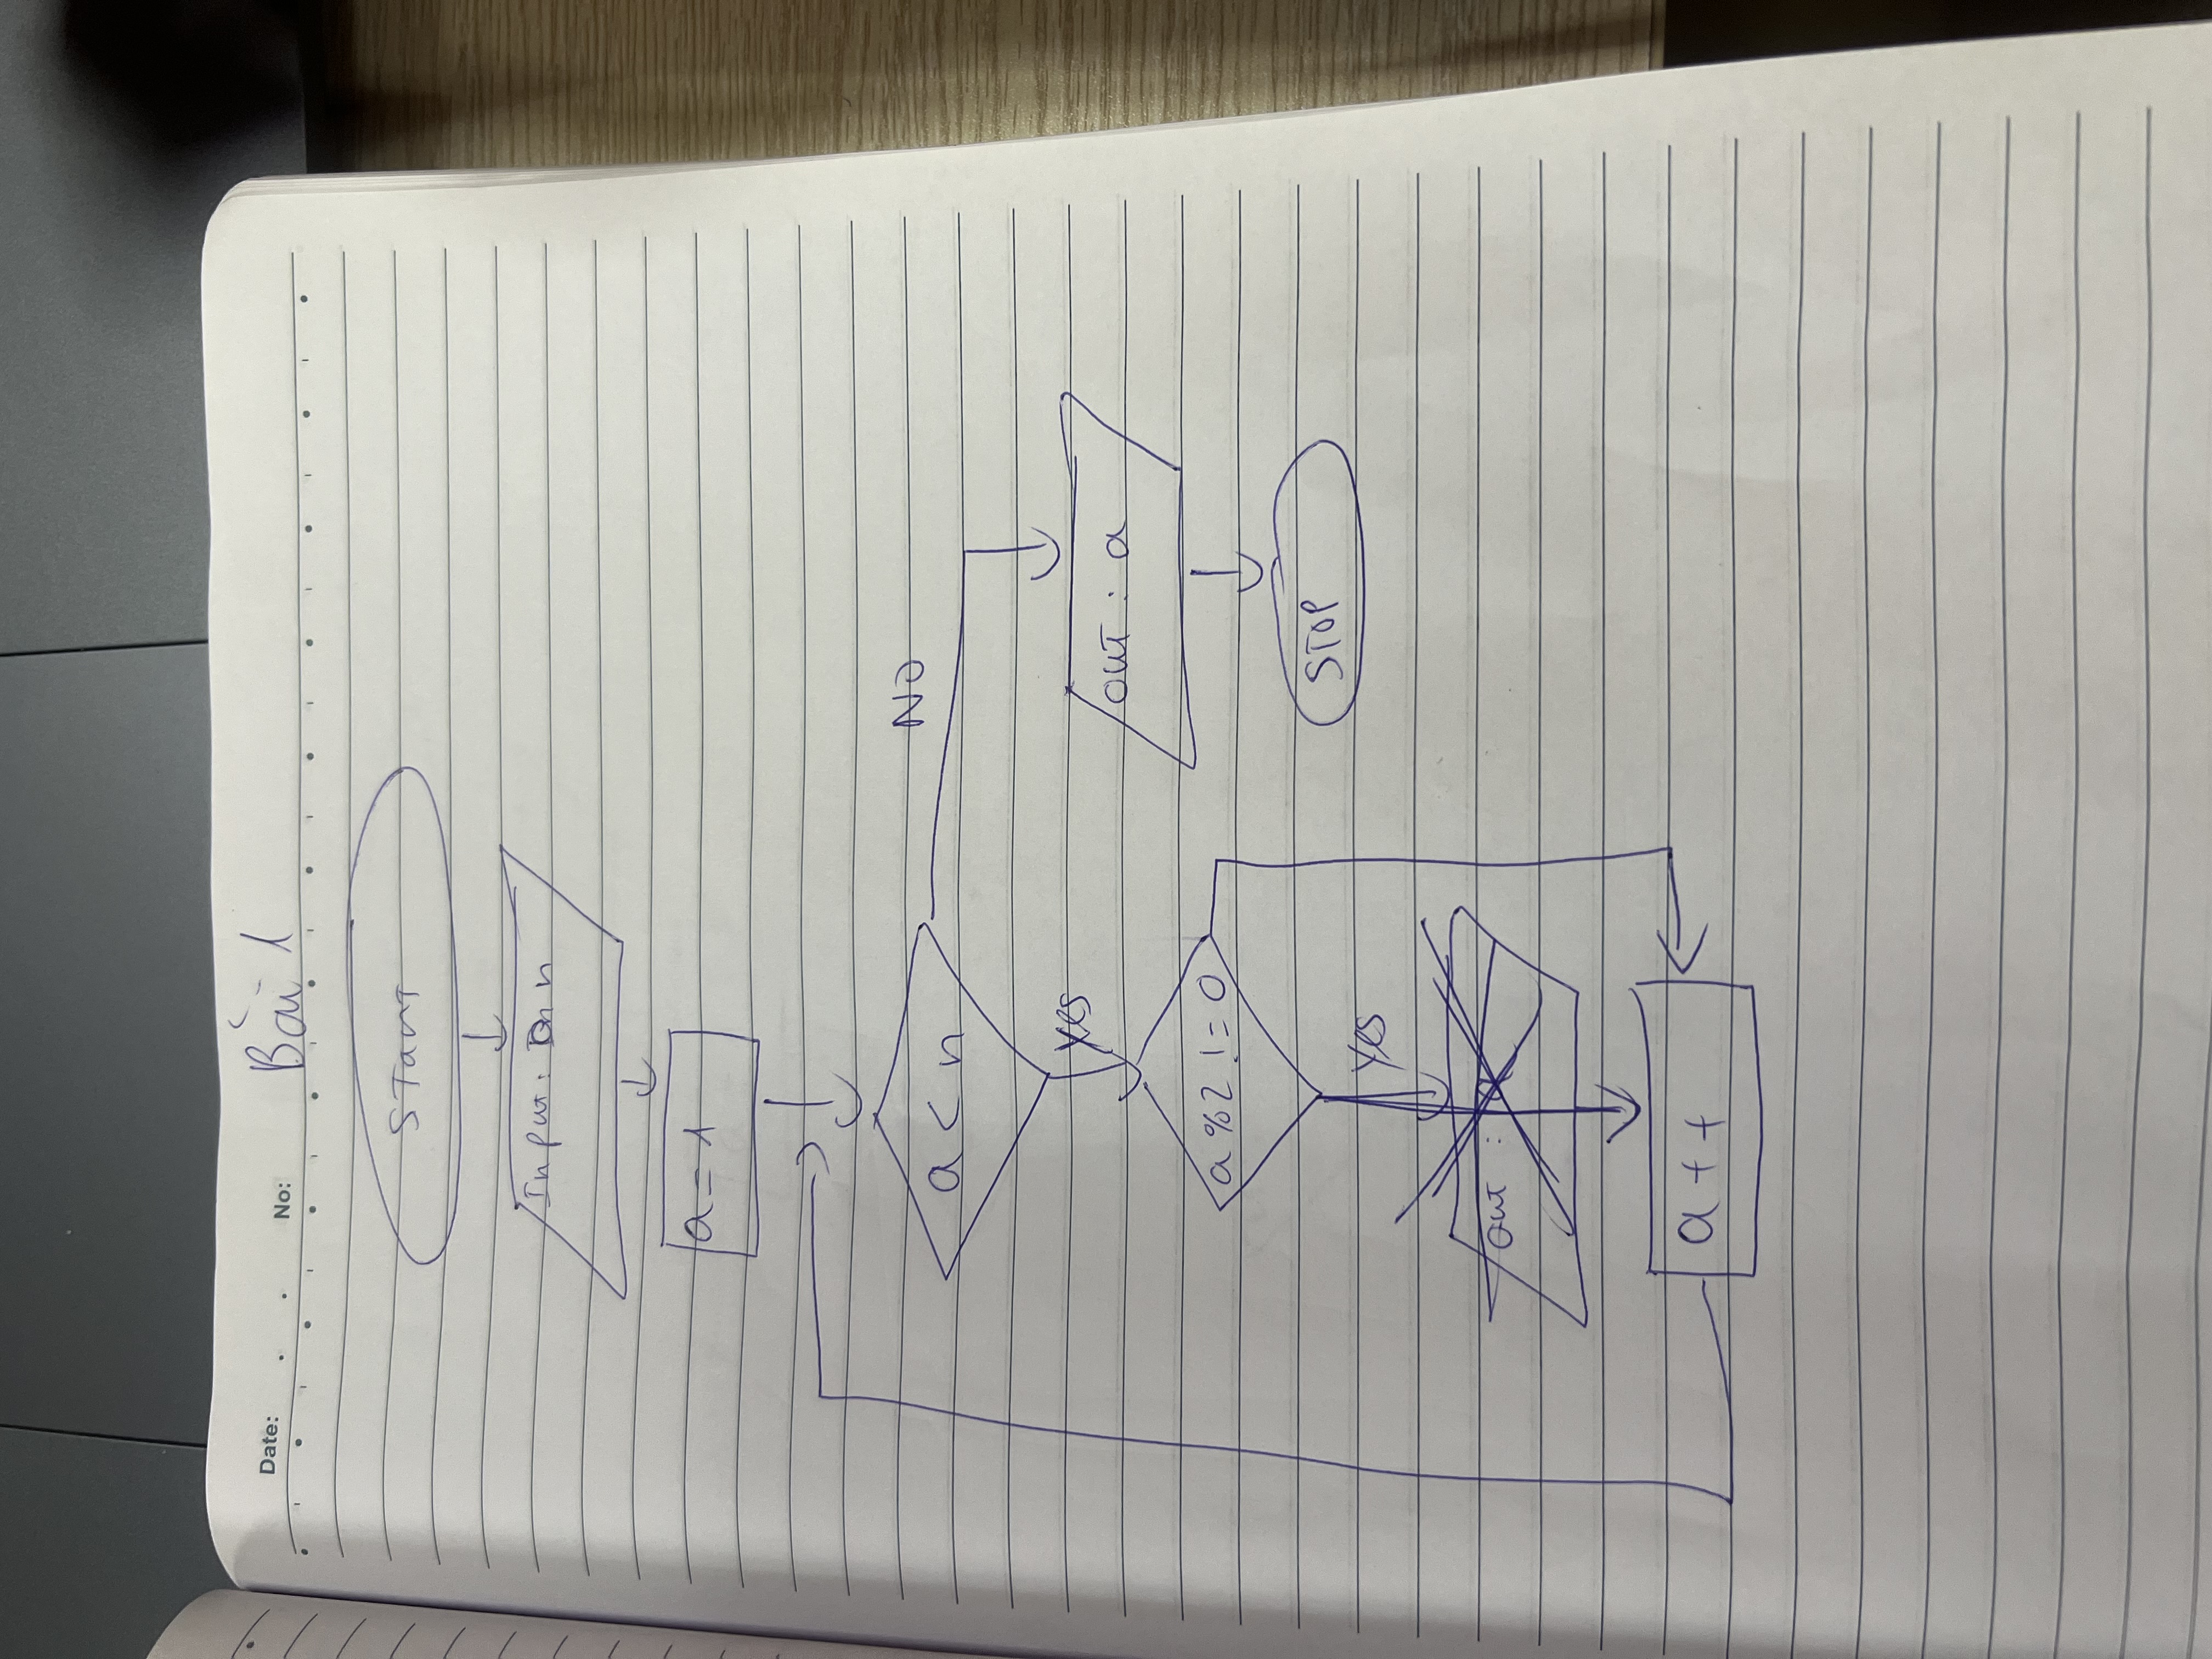 Date: No: Bài 1
Start
Input: n
a = 1
a < n
NO
Yes
out : a
a % 2 != 0
STOP
Yes
out : a
a + +